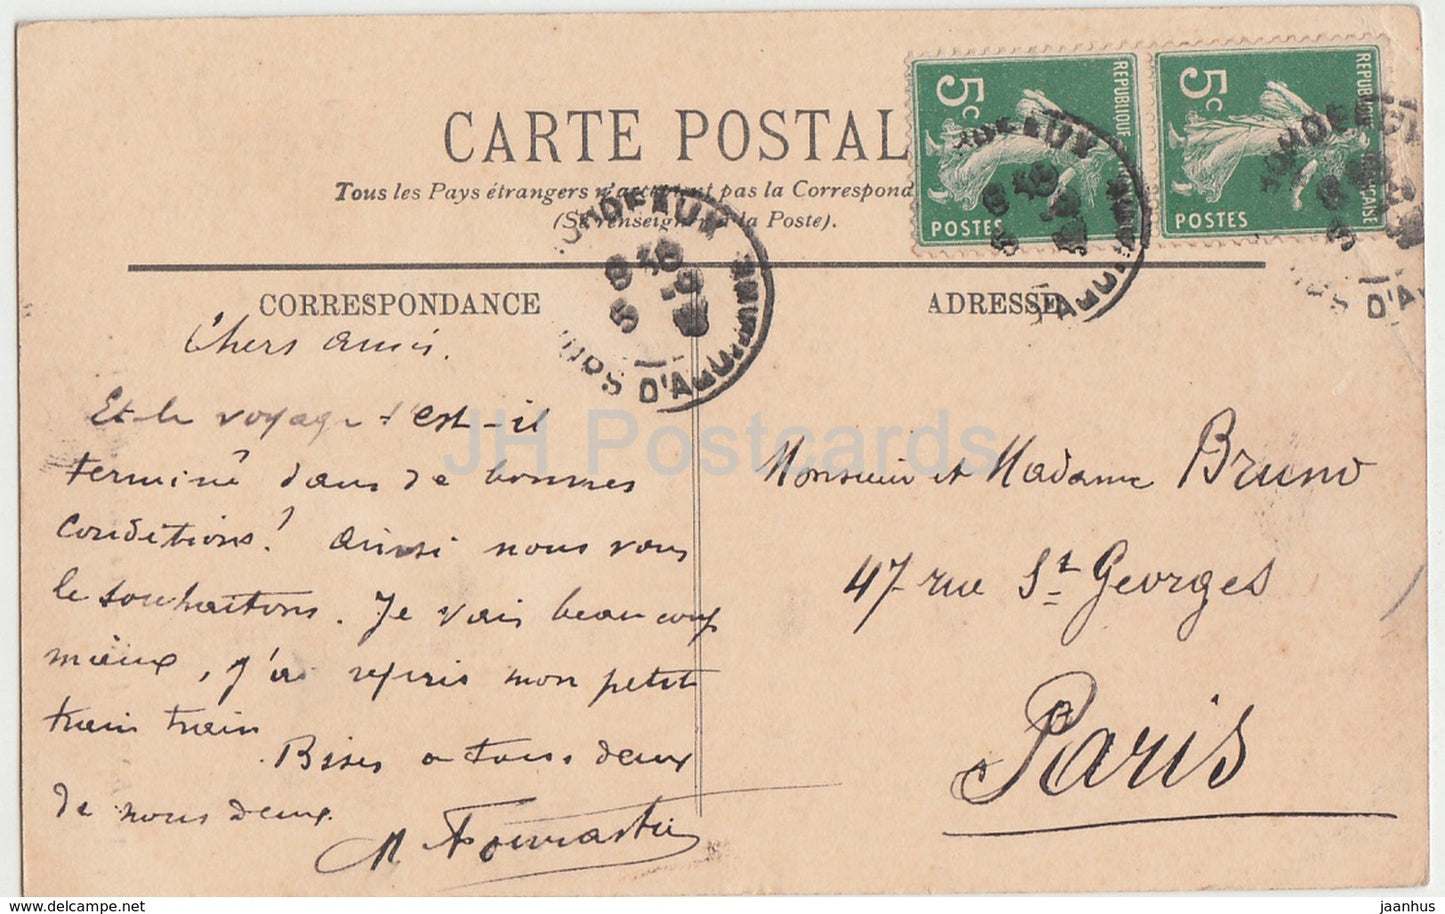 CARTE POSTALE
Tous les Pays étrangers n'acceptent pas la Correspond
(Se renseigner à la Poste).
5c
REPUBLIQUE
POSTES
5c
REPUBLIQUE FRANÇAISE
POSTES
BORDEAUX
COURS D'A
CORRESPONDANCE
ADRESSE
Chers amis.
Et le voyage s'est-il
terminé dans de bonnes
conditions? Ainsi nous vous
le souhaitons. Je vais beaucoup
mieux, j'ai repris mon petit
train train
. Bises à tous deux
de nous deux.
Monsieur et Madame Bruno
47 rue St Georges
Paris
JH Postcards
delcampe.net
jaanhus